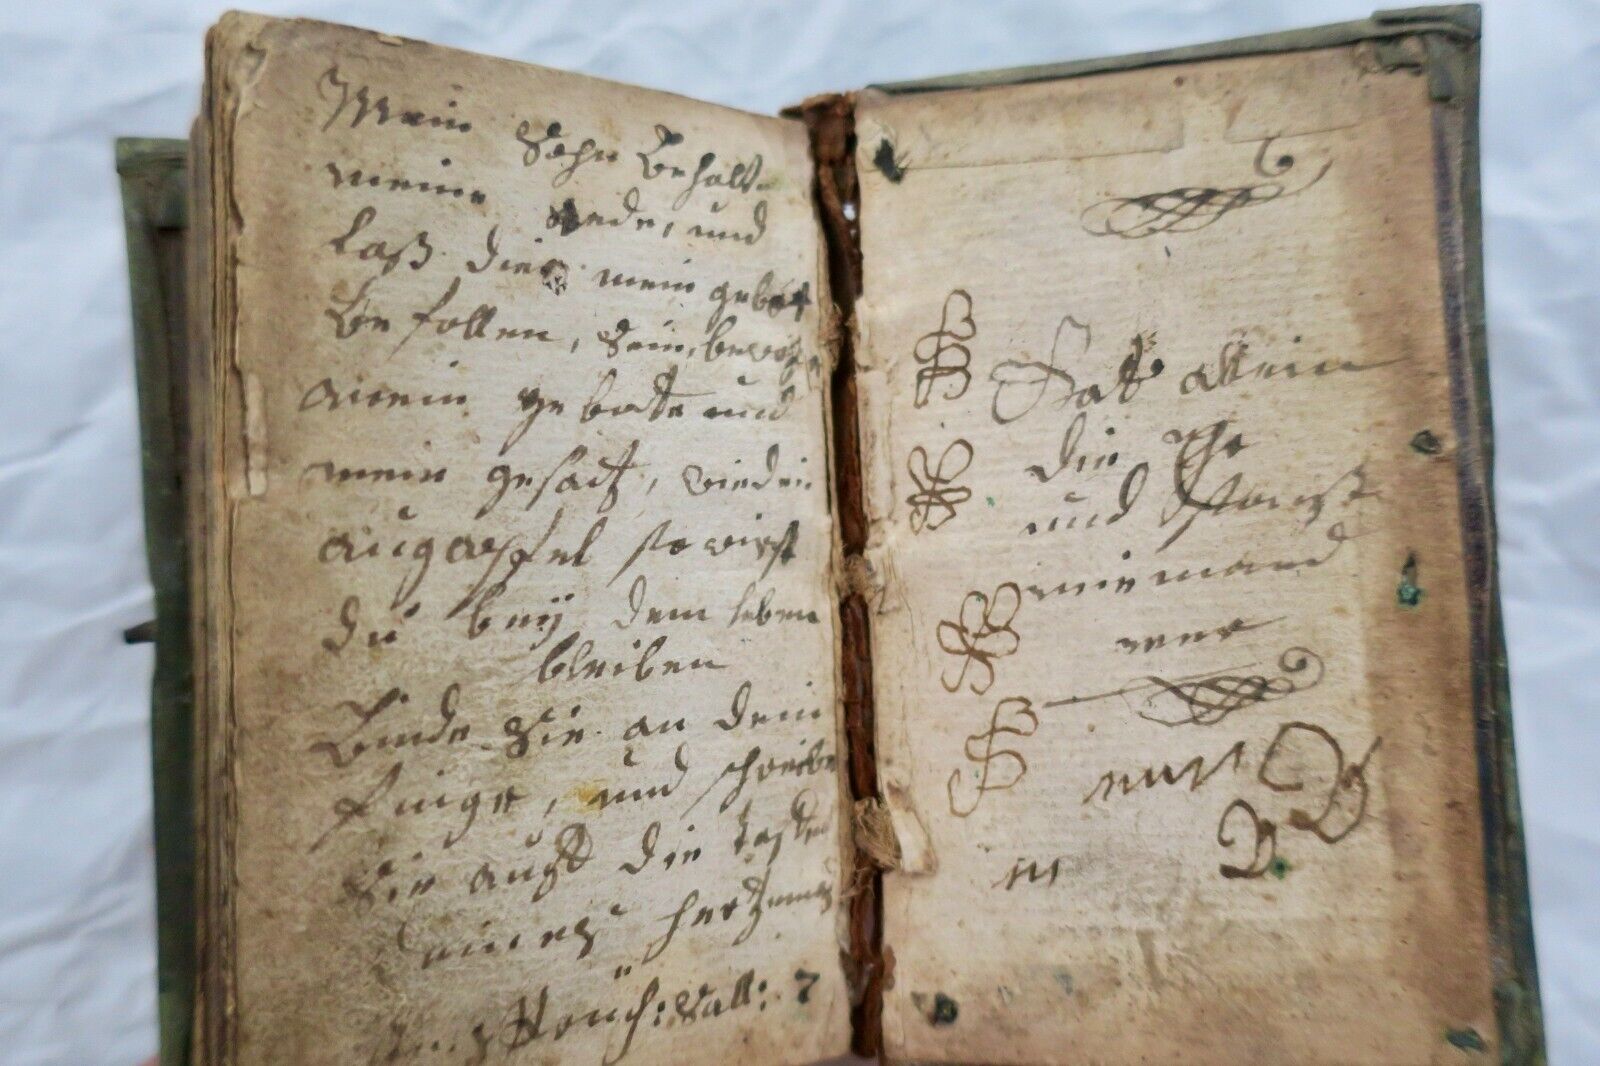 Mein Sohn Behalt
meine Rede, und
laß dier mein gebott
Befollen, Sein, bewahr
mein gebotte und
mein gesatz, wie dein
augapfel so wirst
du beÿ dem leben
bleiben
Binde Sie an dein
finger, und schreibe
Sie auff die taffel
deines hertzens
Spruch: Sall: 7
Gott allein
die Ehr
und sonst
niemand
mer
nun